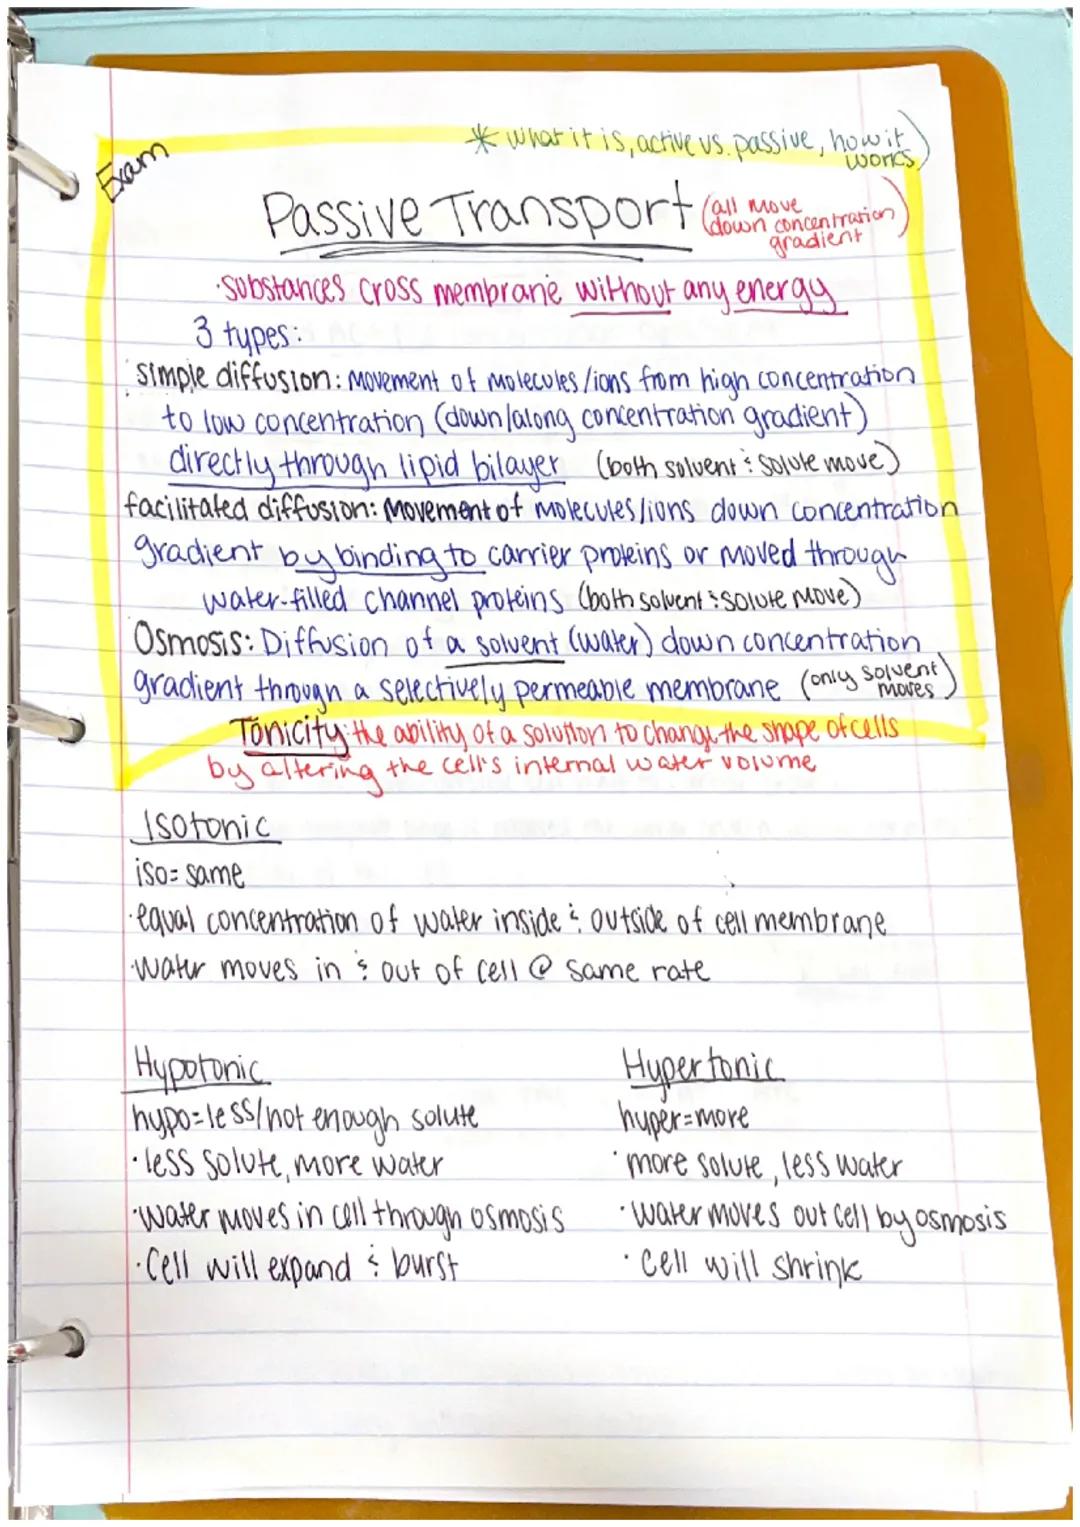 Exam
* what it is, active vs. passive, how it works)
Passive Transport (all move down concentration gradient)
·substances cross membrane without any energy
3 types:
simple diffusion: movement of molecules/ions from high concentration
to low concentration (down/along concentration gradient)
directly through lipid bilayer (both solvent & solute move)
facilitated diffusion: Movement of molecules/ions down concentration
gradient by binding to carrier proteins or moved through
water-filled channel proteins (both solvent & solute move)
Osmosis: Diffusion of a solvent (water) down concentration
gradient through a selectively permeable membrane (only solvent moves)
Tonicity: the ability of a solution to change the shape of cells
by altering the cell's internal water volume
Isotonic
iso= same
·equal concentration of water inside & outside of cell membrane
·water moves in & out of cell @ same rate
Hypotonic
hypo=less/not enough solute
·less solute, more water
·water moves in cell through osmosis
·Cell will expand & burst
Hypertonic
hyper=more
·more solute, less water
·water moves out cell by osmosis
·cell will shrink